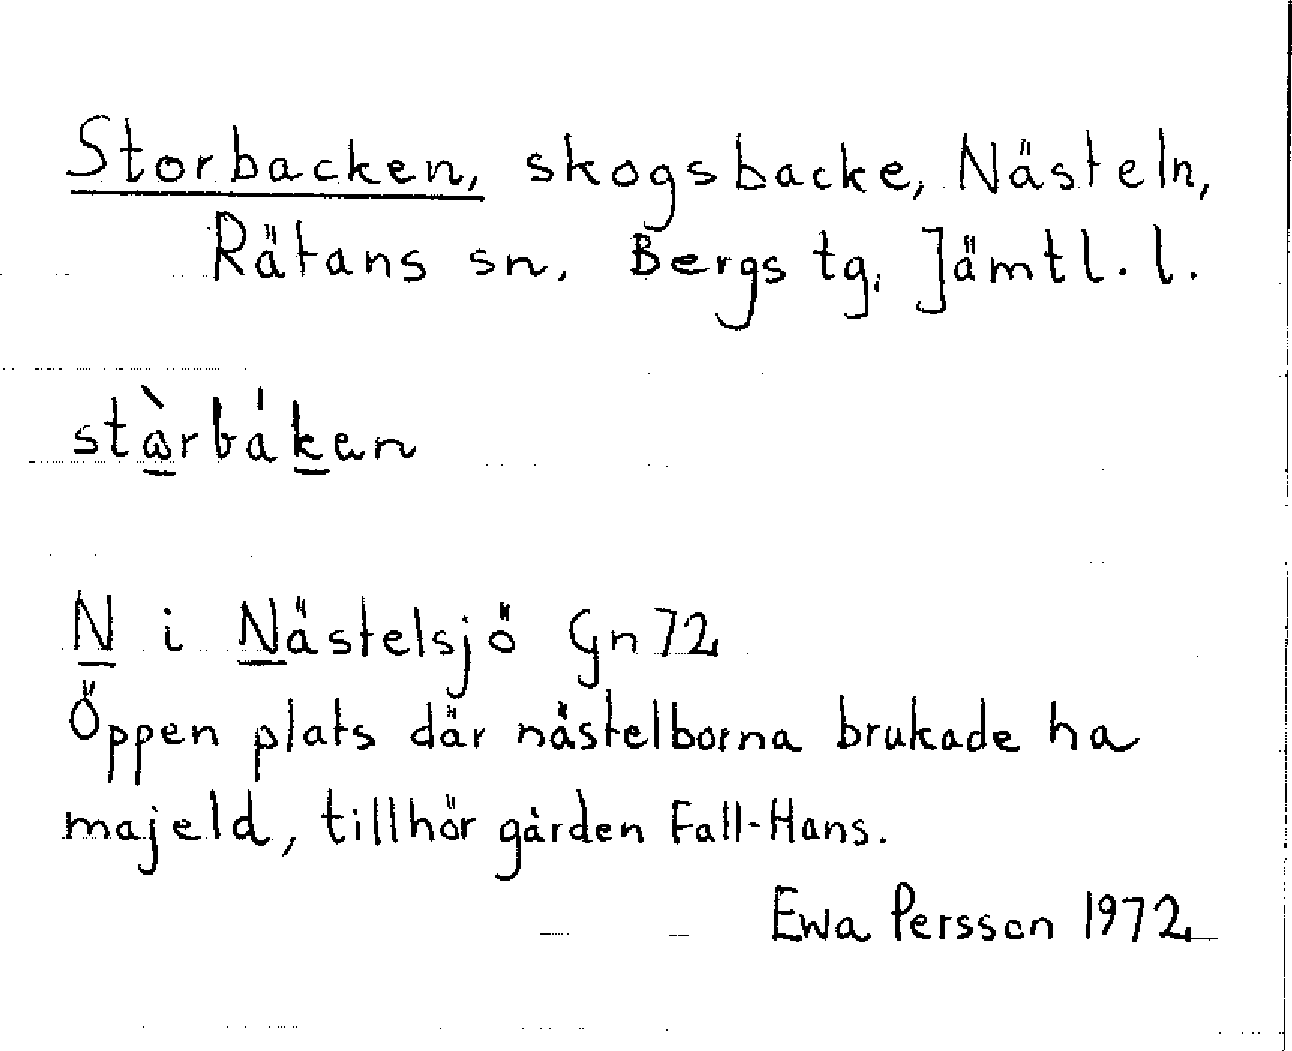 Storbacken, skogsbacke, Nästeln,
Rätans sn. Bergs tg. Jämtl. l.
N i Nästelsjö Gn 72
Öppen plats där nästelborna brukade ha
majeld, tillhör gården Fall-Hans.
Ewa Persson 1972